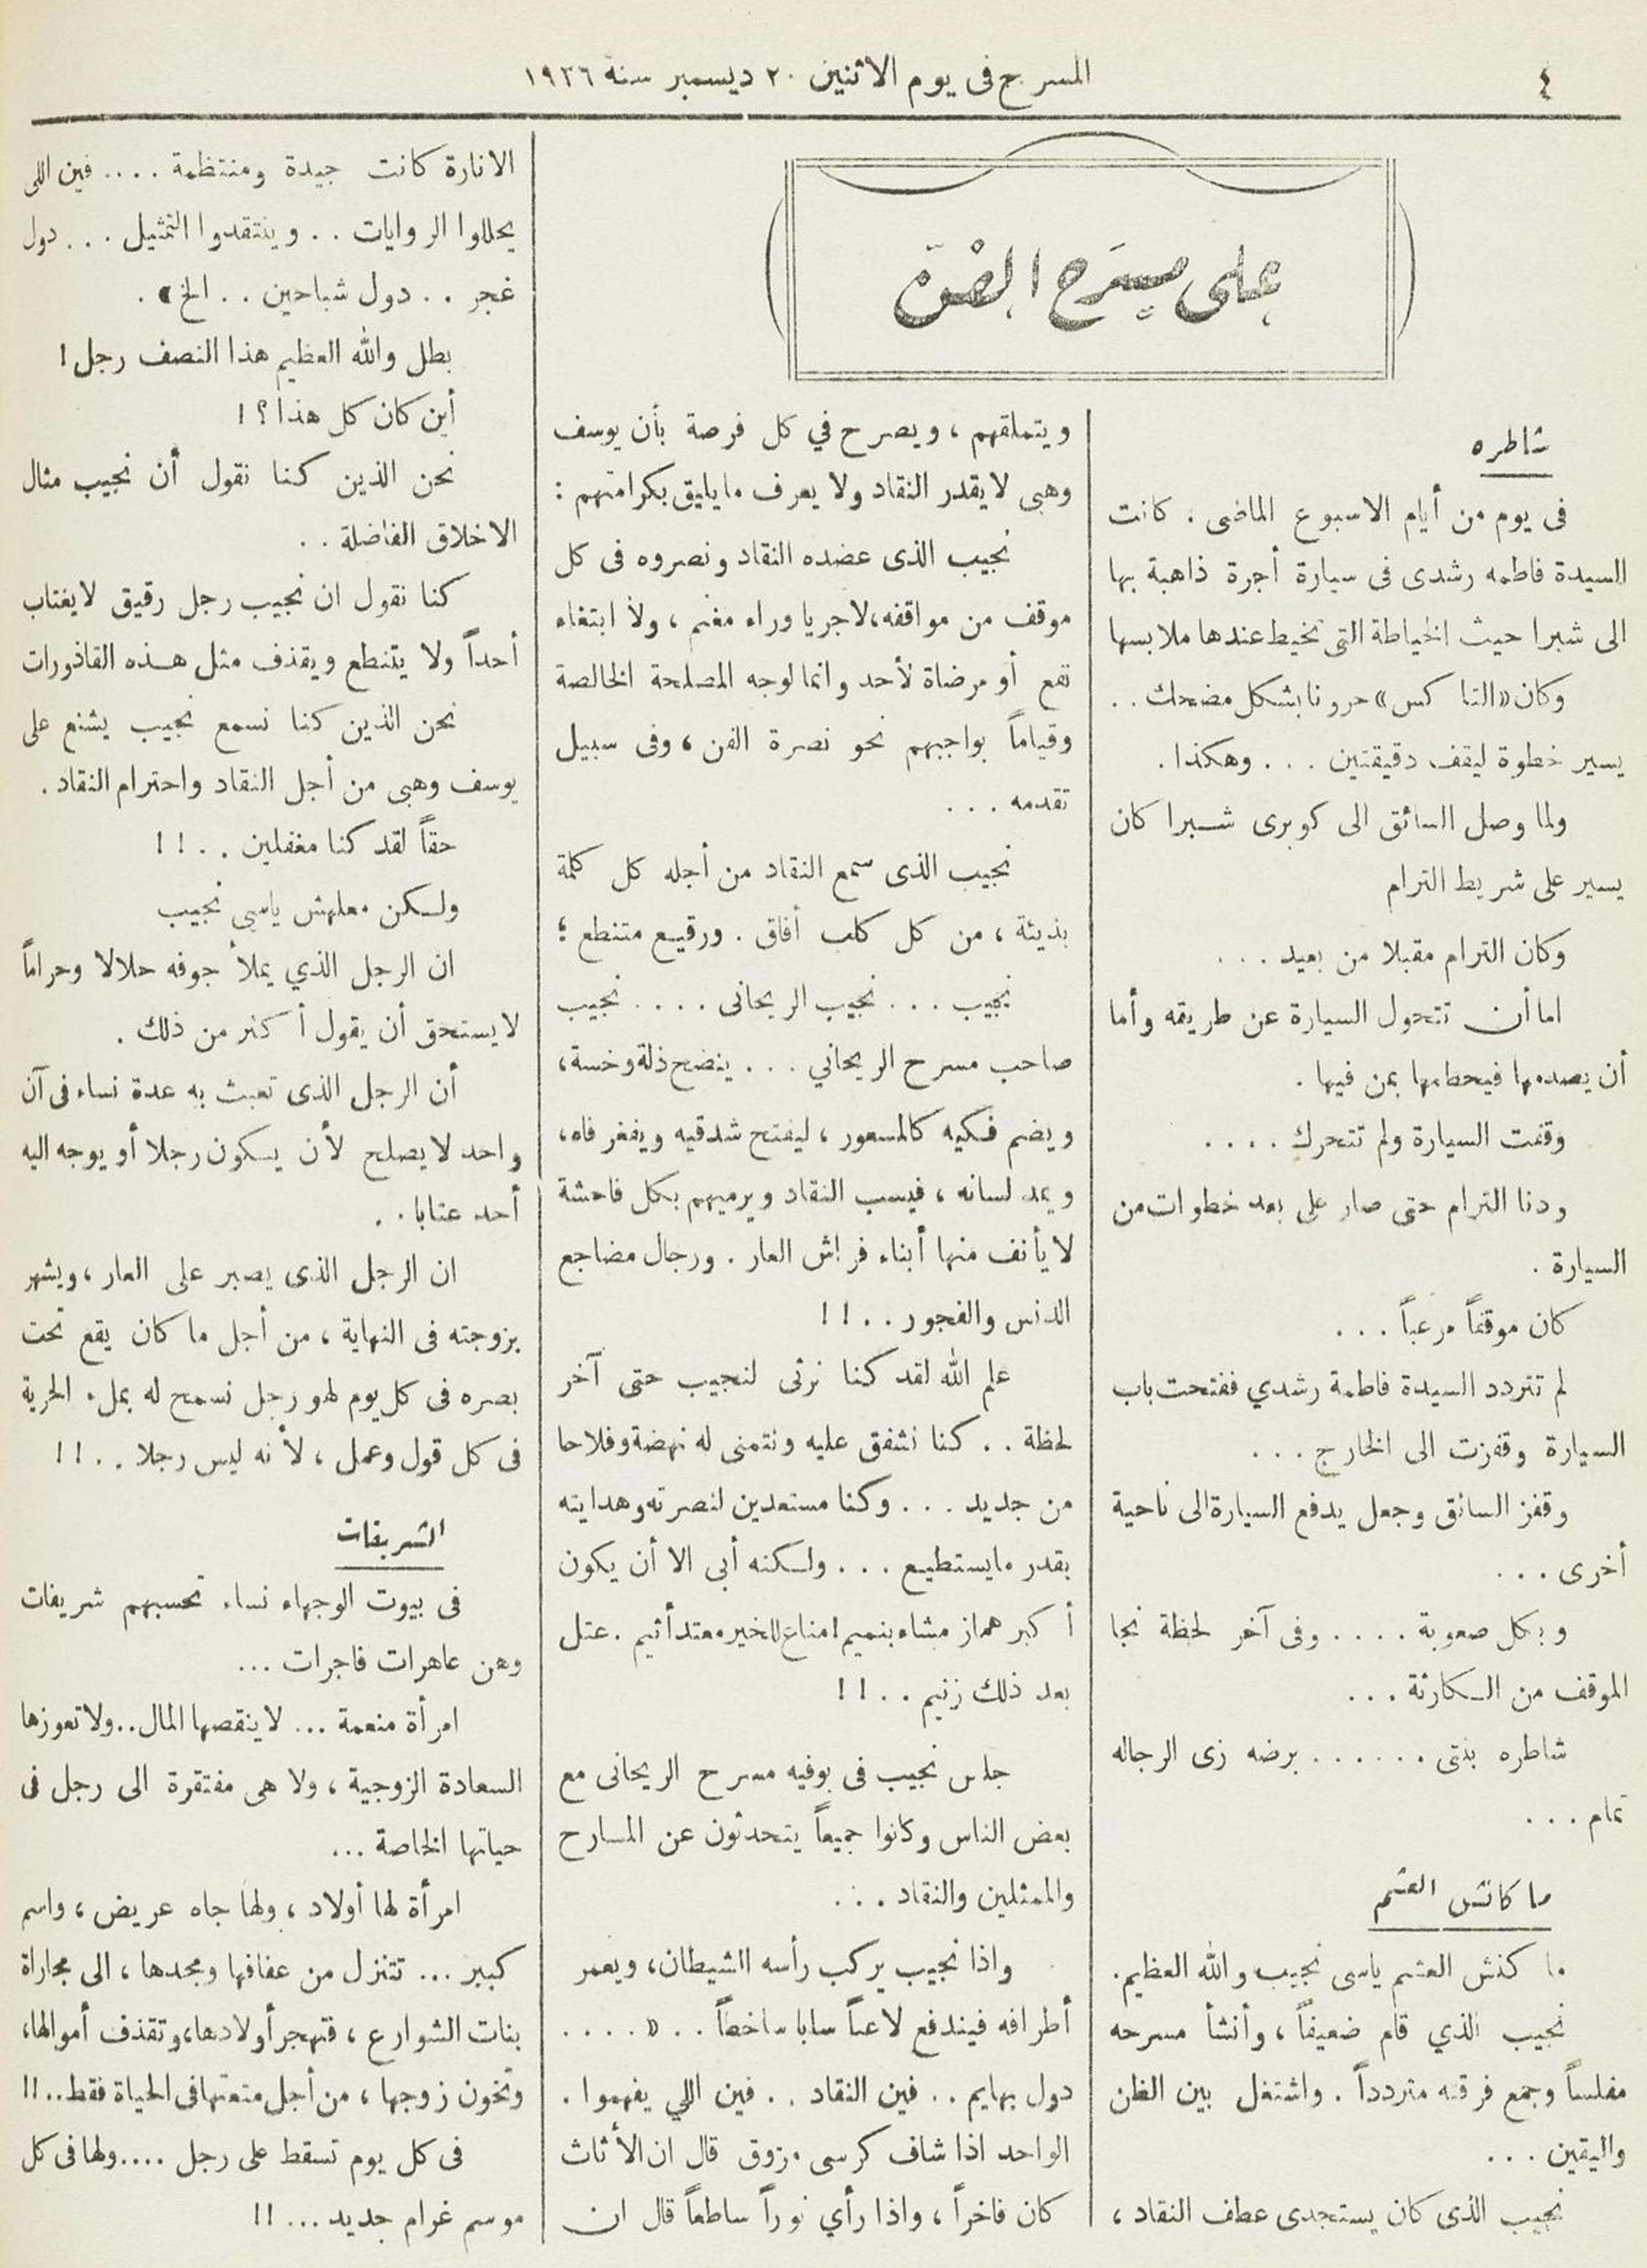 ٤
المسرح فى يوم الاثنين ٢٠ ديسمبر سنة ١٩٢٦
على مسرح الضوء
شاطره
فى يوم من أيام الاسبوع الماضى . كانت
السيدة فاطمه رشدى فى سيارة أجرة ذاهبة بها
الى شبرا حيث الخياطة التى تخيط عندها ملابسها
وكان «التا كس» حرونا بشكل مضحك . .
يسير خطوة ليقف دقيقتين . . . وهكذا .
ولما وصل السائق الى كوبرى شبرا كان
يسير على شريط الترام
وكان الترام مقبلا من بعيد . . .
اما أن تتحول السيارة عن طريقه وأما
أن يصدمها فيحطمها بمن فيها .
وقفت السيارة ولم تتحرك . . . .
ودنا الترام حتى صار على بعد خطوات من
السيارة .
كان موقفاً مرعباً . . .
لم تتردد السيدة فاطمة رشدي ففتحت باب
السيارة وقفزت الى الخارج . . .
وقفز السائق وجعل يدفع السيارة الى ناحية
أخرى . . .
وبكل صعوبة . . . . وفى آخر لحظة نجا
الموقف من الكارثة . . .
شاطره بنتى . . . . . . برضه زى الرجاله
تمام . . .
ما كانش العشم
ما كنش العشم ياسى نجيب والله العظيم.
نجيب الذي قام ضعيفاً ، وأنشأ مسرحه
مفلساً وجمع فرقته متردداً . واشتغل بين الظن
واليقين . . .
نجيب الذى كان يستجدى عطف النقاد ،
ويتملقهم ، ويصرح في كل فرصة بأن يوسف
وهبى لا يقدر النقاد ولا يعرف ما يليق بكرامتهم :
نجيب الذى عضده النقاد ونصروه فى كل
موقف من مواقفه، لا جريا وراء مغنم ، ولا ابتغاء
نفع أو مرضاة لأحد وانما لوجه المصلحة الخالصة
وقياماً بواجبهم نحو نصرة الفن ، وفى سبيل
تقدمه . . .
نجيب الذى سمع النقاد من أجله كل كلمة
بذيئة ، من كل كلب أفاق . ورقيع متنطع ؛
نجيب . . . نجيب الريحانى . . . . نجيب
صاحب مسرح الريحاني . . . ينضح ذلة وخسة ،
ويضم فكيه كالمسعور ، ليفتح شدقيه ويفغر فاه ،
ويمد لسانه ، فيسب النقاد ويرميهم بكل فاحشة
لا يأنف منها أبناء فراش العار . ورجال مضاجع
الدنس والفجور . . ! !
علم الله لقد كنا نرثى لنجيب حتى آخر
لحظة . . كنا نشفق عليه ونتمنى له نهضة وفلاحا
من جديد . . . وكنا مستعدين لنصرته وهدايته
بقدر مايستطيع . . . ولكنه أبى الا أن يكون
أ كبر هماز مشاء بنميم ! مناع للخير معتد أثيم . عتل
بعد ذلك زنيم . . ! !
جلس نجيب فى بوفيه مسرح الريحانى مع
بعض الناس وكانوا جميعاً يتحدثون عن المسارح
والممثلين والنقاد . . .
واذا نجيب يركب رأسه الشيطان، ويعمر
أطرافه فيندفع لاعناً سابا ساخطاً . . « . . . .
دول بهايم . . فين النقاد . . فين اللي يفهموا .
الواحد اذا شاف كرسى مزوق قال ان الأثاث
كان فاخراً ، واذا رأي نوراً ساطعاً قال ان
الانارة كانت جيدة ومنتظمة . . . . فين اللى
يحللوا الروايات . . وينتقدوا التمثيل . . . دول
غجر . . دول شباحين . . الخ » .
بطل والله العظيم هذا النصف رجل !
أين كان كل هذا ؟ !
نحن الذين كنا نقول أن نجيب مثال
الاخلاق الفاضلة . .
كنا نقول ان نجيب رجل رقيق لا يغتاب
أحداً ولا يتنطع ويقذف مثل هذه القاذورات
نحن الذين كنا نسمع نجيب يشنع على
يوسف وهبى من أجل النقاد واحترام النقاد .
حقاً لقد كنا مغفلين . . ! !
ولكن معلهش ياسى نجيب
ان الرجل الذي يملأ جوفه حلالا وحراماً
لا يستحق أن يقول أ كثر من ذلك .
أن الرجل الذى تعبث به عدة نساء فى آن
واحد لا يصلح لأن يكون رجلا أو يوجه اليه
أحد عتابا . .
ان الرجل الذى يصبر على العار ، ويشهر
بزوجته فى النهاية ، من أجل ما كان يقع تحت
بصره فى كل يوم لهو رجل نسمح له بملء الحرية
فى كل قول وعمل ، لأنه ليس رجلا . . ! !
الشريفات
فى بيوت الوجهاء نساء تحسبهم شريفات
وهن عاهرات فاجرات ...
امرأة منعمة ... لا ينقصها المال .. ولا تعوزها
السعادة الزوجية ، ولا هى مفتقرة الى رجل فى
حياتها الخاصة ...
امرأة لها أولاد ، ولها جاه عريض ، واسم
كبير ... تتنزل من عفافها ومجدها ، الى مجاراة
بنات الشوارع ، فتهجر أولادها، وتقذف أموالها،
وتخون زوجها ، من أجل متعتها فى الحياة فقط .. !!
فى كل يوم تسقط على رجل .... ولها فى كل
موسم غرام جديد ... !!